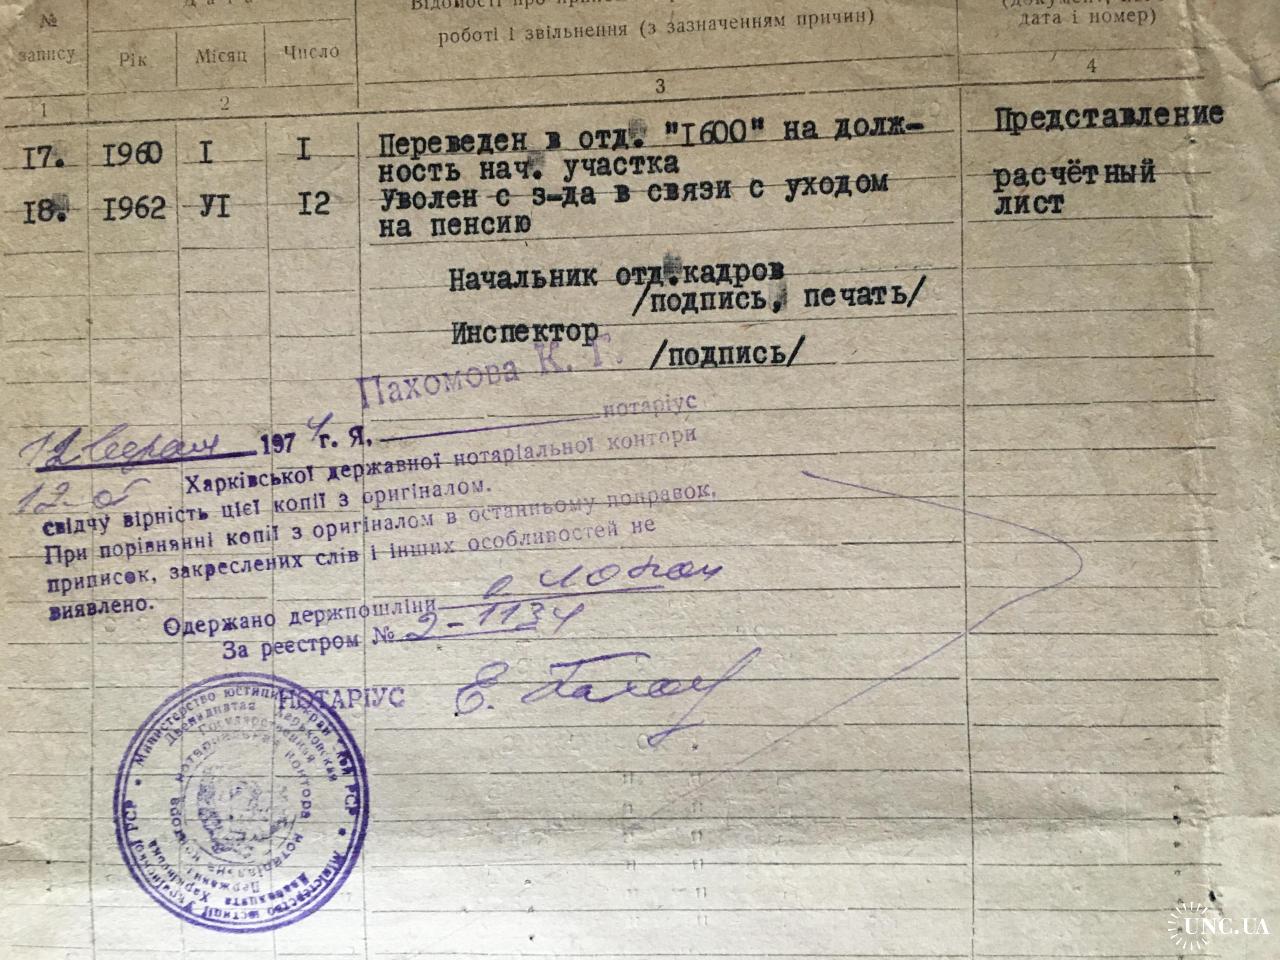 №
Дата
запису
Рік
Місяц
Число
роботі і звільнення (з зазначенням причин)
дата і номер)
1
2
3
4
17.
1960
I
I
Переведен в отд. "1600" на долж-
ность нач. участка
Представление
18.
1962
УI
12
Уволен с з-да в связи с уходом
на пенсию
расчётный
лист
Начальник отд.кадров
/подпись, печать/
Инспектор
/подпись/
Пахомова К. Г.
12 1974 г. Я, нотаріус
12-ої Харківської державної нотаріальної контори
свідчу вірність цієї копії з оригіналом.
При порівнянні копії з оригіналом в останньому поправок,
приписок, закреслених слів і інших особливостей не
виявлено.
Одержано держпошліни
За реєстром № 2-1134
НОТАРІУС
Министерство юстиции Украинской РСР
Двенадцатая Харьковская
Государственная
нотариальная контора
Міністерство юстиції Української РСР
Дванадцята Харківська
Державна
нотаріальна контора
UNC.UA